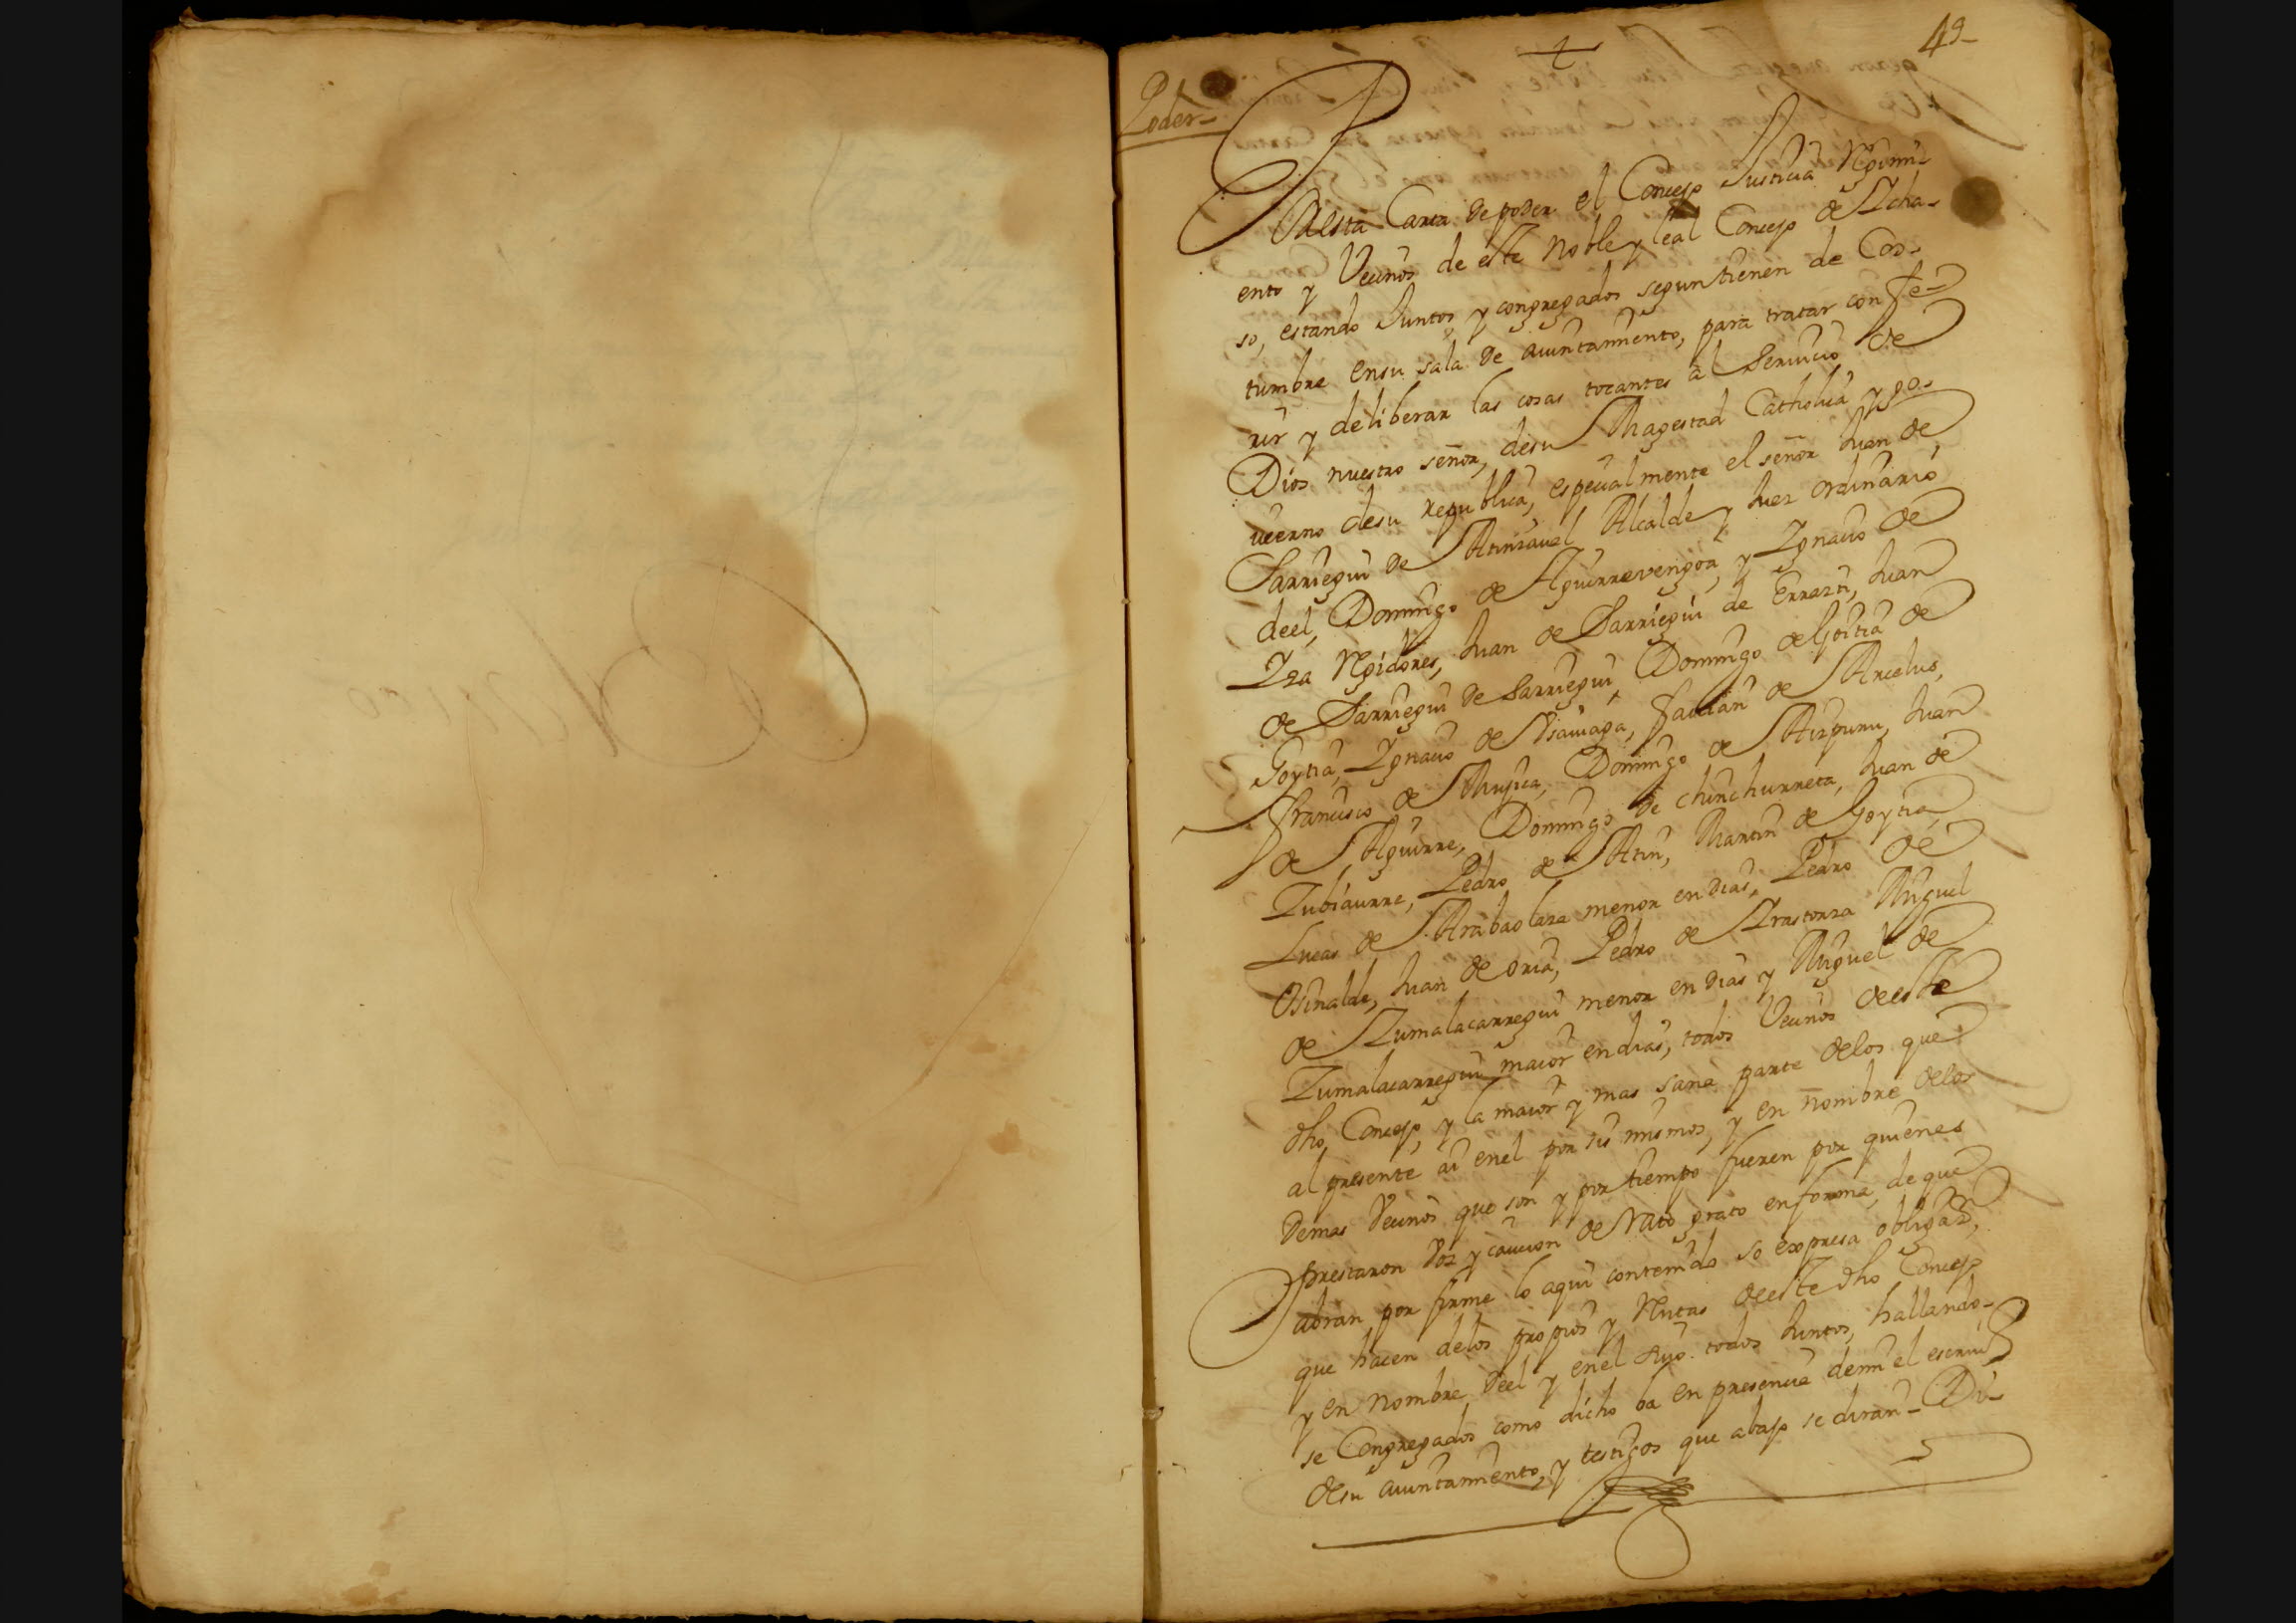 49
Poder
Por esta Carta de poder el Concejo Justicia Regimi-
ento y Vecinos de este Noble y leal Concejo de Acha-
so, estando Juntos y congregados segun tienen de Cos-
tumbre en su sala de aiuntamiento, para tratar confe-
rir y deliberar las cosas tocantes al Seruicio de
Dios nuestro señor, de su Magestad Catholica y go-
uierno de su republica, especialmente el señor Juan de
Sarriegui de Atinzaual Alcalde y Juez ordinario
de el, Domingo de Aguirrevengoa, y Ygnacio de
Yza Regidores, Juan de Sarriegui de Errazti, Juan
de Sarriegui de Sarriegui Domingo de Goitia de
Goytia, Ygnacio de Ysauiaga, Fauian de Arcelus,
Francisco de Mujica, Domingo de Aizpuru, Juan
de Aguirre, Domingo de Chinchurreta, Juan de
Zubiaurre, Pedro de Atin, Martin de Goytia,
Lucas de Arabaolaza menor en dias, Pedro de
Osinalde, Juan de oria, Pedro de Yrastorza Miguel
de Zumalacarregui menor en dias y Miguel de
Zumalacarregui maior en dias, todos Vecinos de este
dho Concejo, y la maior y mas sana parte de los que
al presente ai en el por sis mismos, y en nombre de los
demas Vecinos que son y por tiempo fueren por quienes
prestaron Voz y caucion de Rato grato en forma, de que
abran por firme lo aqui contenido so expresa obligaz.on
que hacen de los propios y Rentas de este dho Concejo
y en nombre de el y en el suyo todos Juntos, hallando-
se Congregados como dicho ba en presencia de mi el escriu.o
de su aiuntamiento, y testigos que abajo se diran - Di-